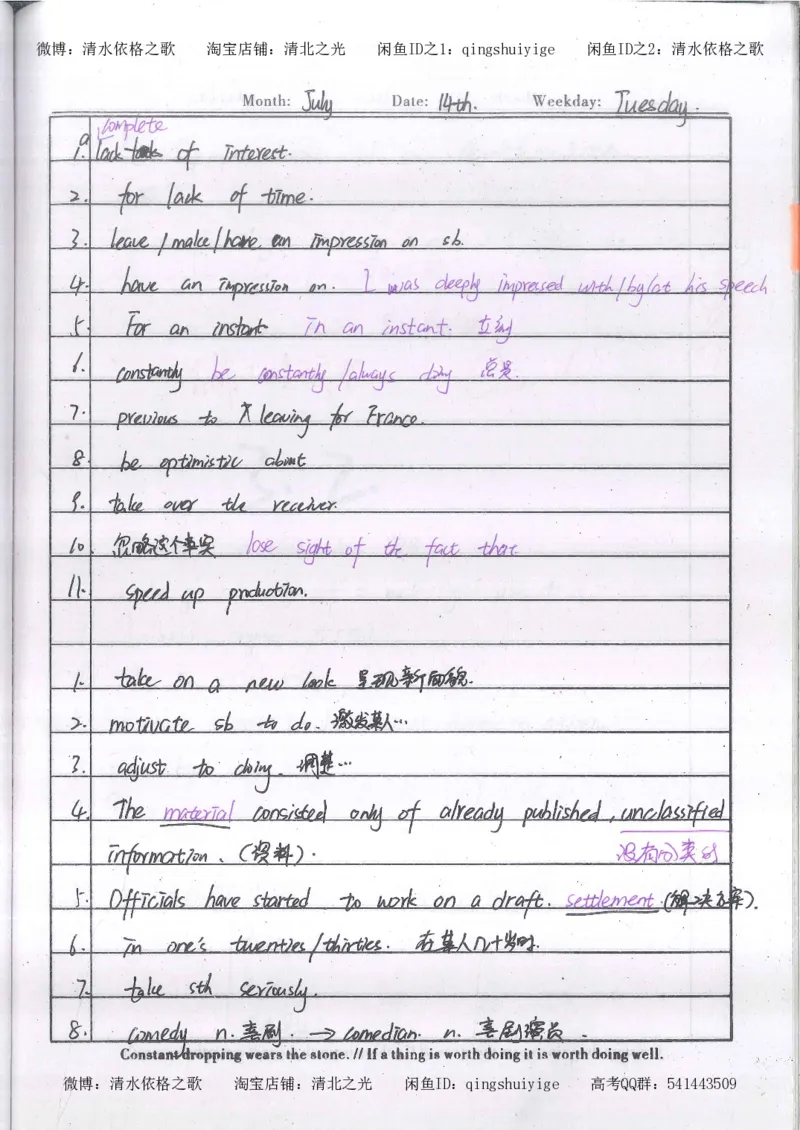 微博：清水依格之歌 淘宝店铺：清北之光 闲鱼ID之1：qingshuiyige 闲鱼ID之2：清水依格之歌
Month: July Date: 14th. Weekday: Tuesday.
complete
1. a lack of interest.
2. for lack of time.
3. leave/make/have an impression on sb.
4. have an impression on. I was deeply impressed with/by/at his speech
5. For an instant in an instant. 立刻
6. constantly be constantly/always doing 总是.
7. previous to leaving for France.
8. be optimistic about
9. take over the receiver.
10. 忽略这个事实 lose sight of the fact that
11. speed up production.
1. take on a new look 呈现新面貌.
2. motivate sb to do. 激发某人…
3. adjust to doing. 调整…
4. The material consisted only of already published, unclassified
information、(资料). 没有分类的
5. Officials have started to work on a draft. settlement. (解决方案).
6. in one's twenties/thirties. 在某人几十岁时.
7. take sth seriously.
8. comedy n. 喜剧. → comedian. n. 喜剧演员.
Constant dropping wears the stone. // If a thing is worth doing it is worth doing well.
微博：清水依格之歌 淘宝店铺：清北之光 闲鱼ID：qingshuiyige 高考QQ群：541443509